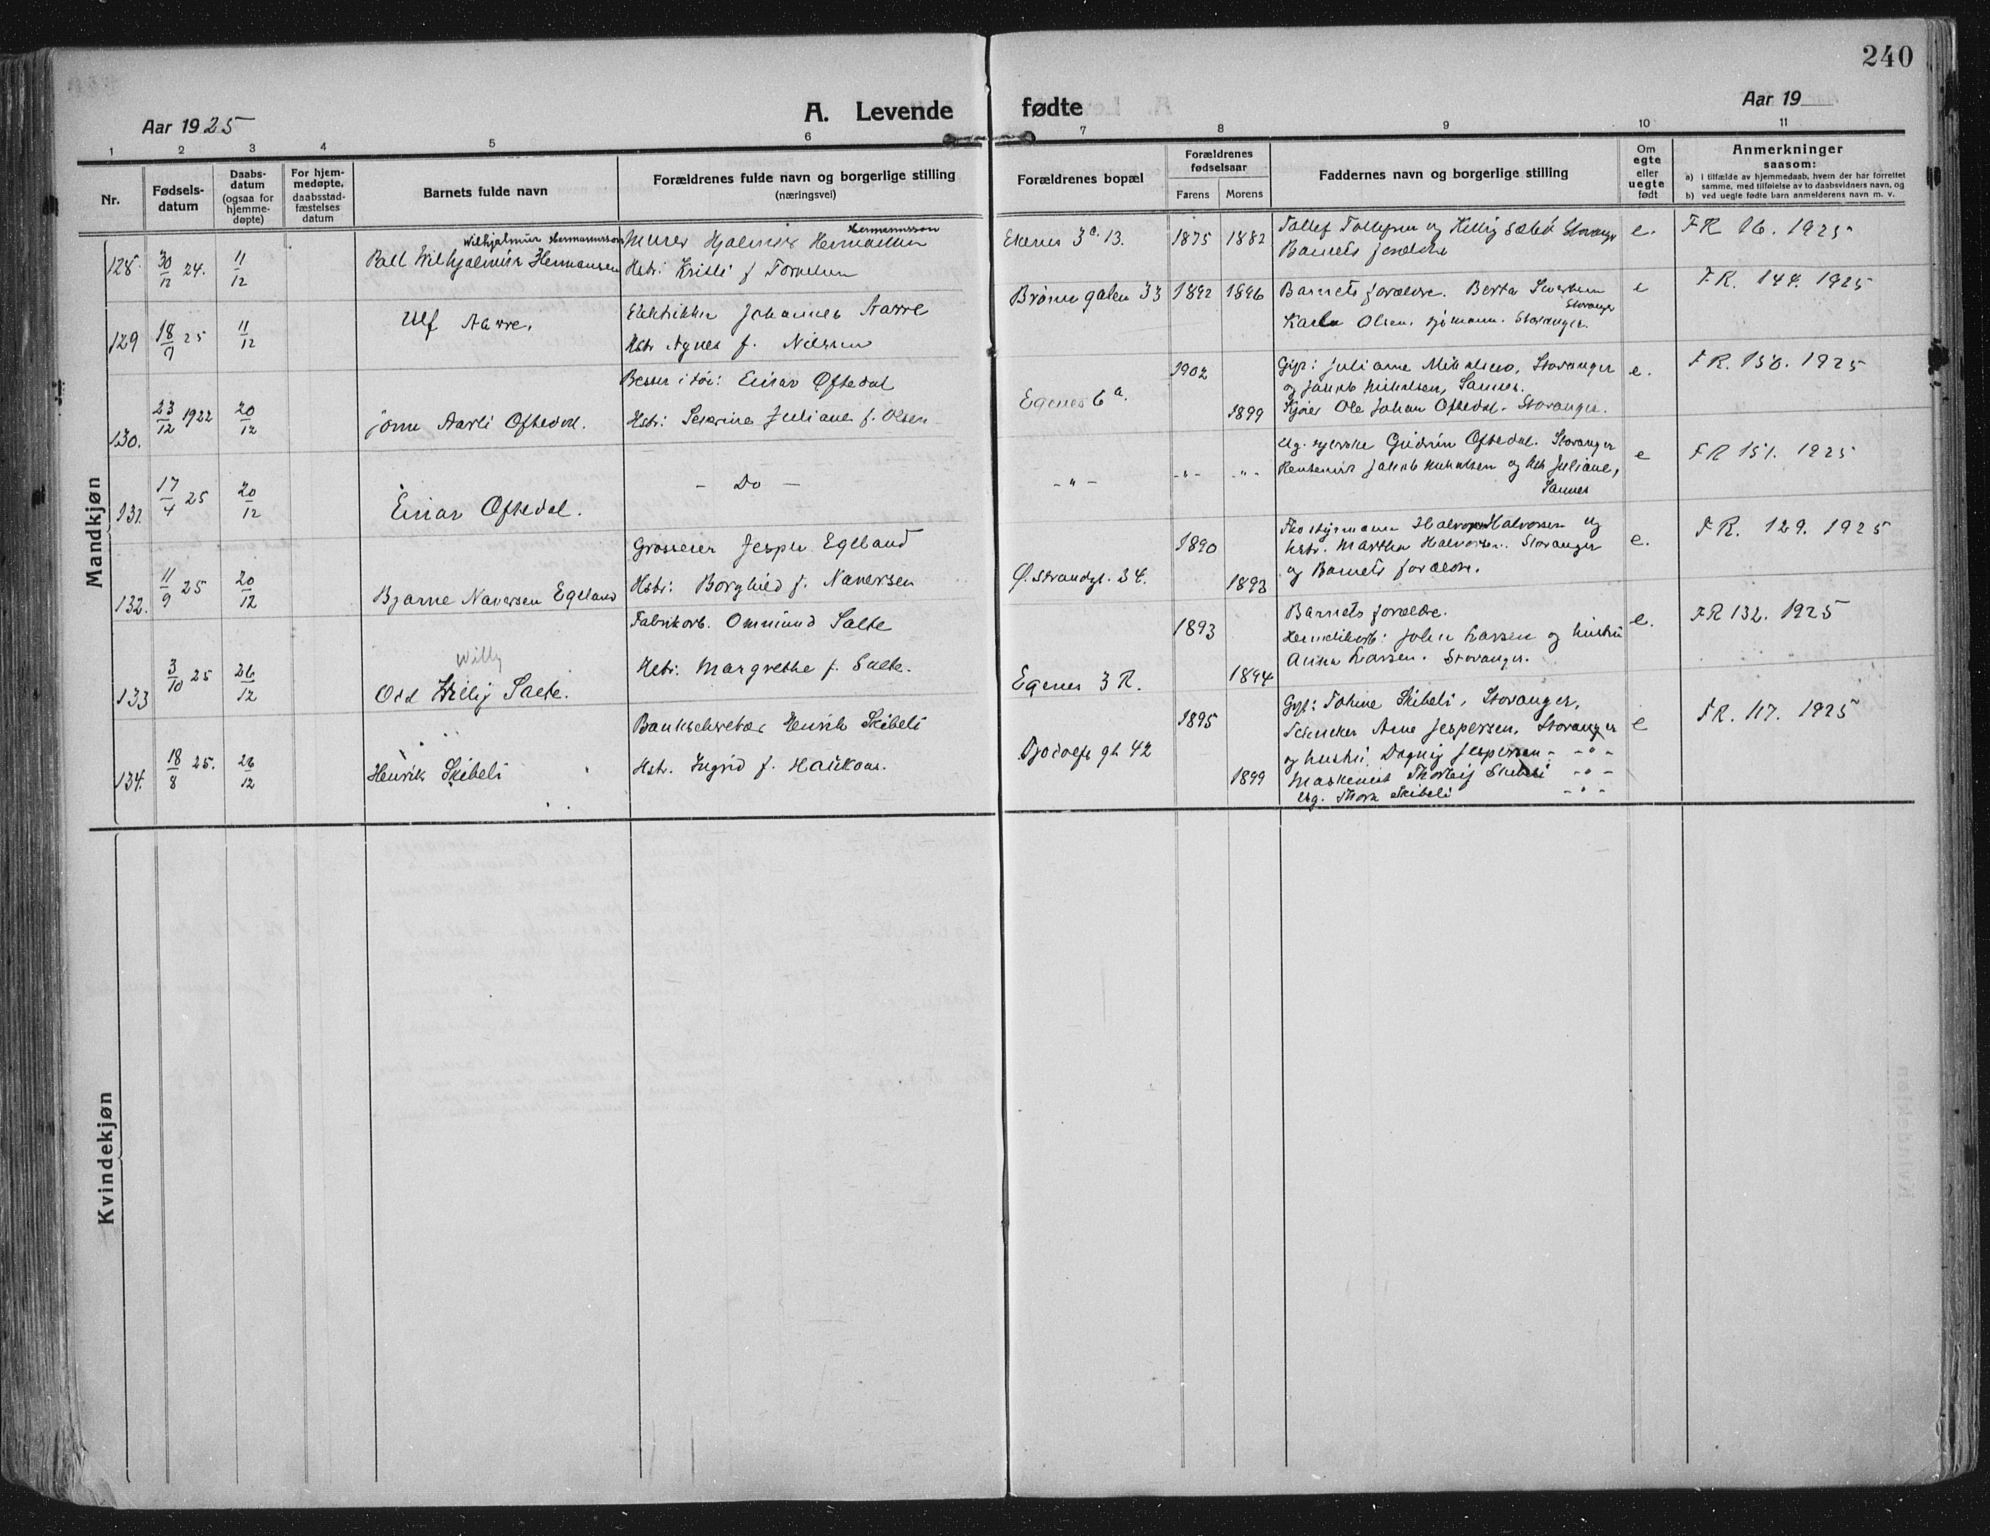 240
A. Levende fødte
Aar 1925
Aar 19
1 2 3 4 5 6 7 8 9 10 11
Nr.
Fødselsdatum
Daabsdatum (ogsaa for hjemmedøpte)
For hjemmedøpte, daabsstadfæstelses datum
Barnets fulde navn
Forældrenes fulde navn og borgerlige stilling (næringsvei)
Forældrenes bopæl
Forældrenes fødselsaar
Farens Morens
Faddernes navn og borgerlige stilling
Om egte eller uegte født
Anmerkninger
saasom:
a) I tilfælde av hjemmedaab, hvem der har forrettet samme, med tilføielse av to daabsvidners navn, og
b) ved uegte fødte barn anmelderens navn m. v.
Mandkjøn
128. 30/12 24. 11/12
Wilhjalmur Hermannsson
Pall Wilhjalmur Hermansen
Hermannsson
Murer Hjalmar Hermansen
Hstr: Kristi f
3a. 13. 1875 1882
Tollef Tollefsen og Stavanger
Barnets forældre
e. FR 16. 1925
129 18/7 25 11/12
Ulf Aarre.
Johannes Aarre
Hstr Agnes f. Nilssen
33 1892 1896
Barnets forældre. Berta Sivertsen
Stavanger
Olsen, sjømann. Stavanger.
e FR. 144. 1925
130. 23/12 1922 20/12
Oftedal.
Einar Oftedal
Hstr: Juliane f. Olsen
Egenes 6a. 1902 1899
Gift: Juliane Mikalsen, Stavanger
og Jakob Mikalsen, Sannes.
Ole Johan Oftedal. Stavanger.
e. FR. 150. 1925
131. 17/4 25 20/12
Einar Oftedal.
— Do —
— " — -"- -"-
Gudrun Oftedal. Stavanger
Jakob Mikalsen og Juliane,
Sannes
e FR 151. 1925
132. 11/9 25 20/12
Bjarne Naversen Egeland
Grosserer Jesper Egeland
Hstr: Borghild f. Naversen
Ø. Strandgt. 34. 1890 1893
Halvorsen og
hstr. Martha Halvorsen. Stavanger
og Barnets forældre.
e. FR. 129. 1925
133 3/10 25 26/12
Willy
Odd Willy Salte.
Fabrikarb. Ommund Salte
Hstr: Margrethe f. Salte.
Egenes 3 R. 1893 1894
Barnets forældre.
John Larsen og hustru
Anna Larsen. Stavanger.
e. FR 132. 1925
134. 18/8 25. 26/12
Henrik Skibeli
Henrik Skibeli
Hstr. Ingrid f. Haukaas.
gt 42 1895 1899
Gift: Skibeli, Stavanger,
Arne Jespersen, Stavanger
og hustru, Dagny Jespersen - -"-
Skibeli -"-
Ug. Thora Skibeli -"-
e FR. 117. 1925
Kvindekjøn